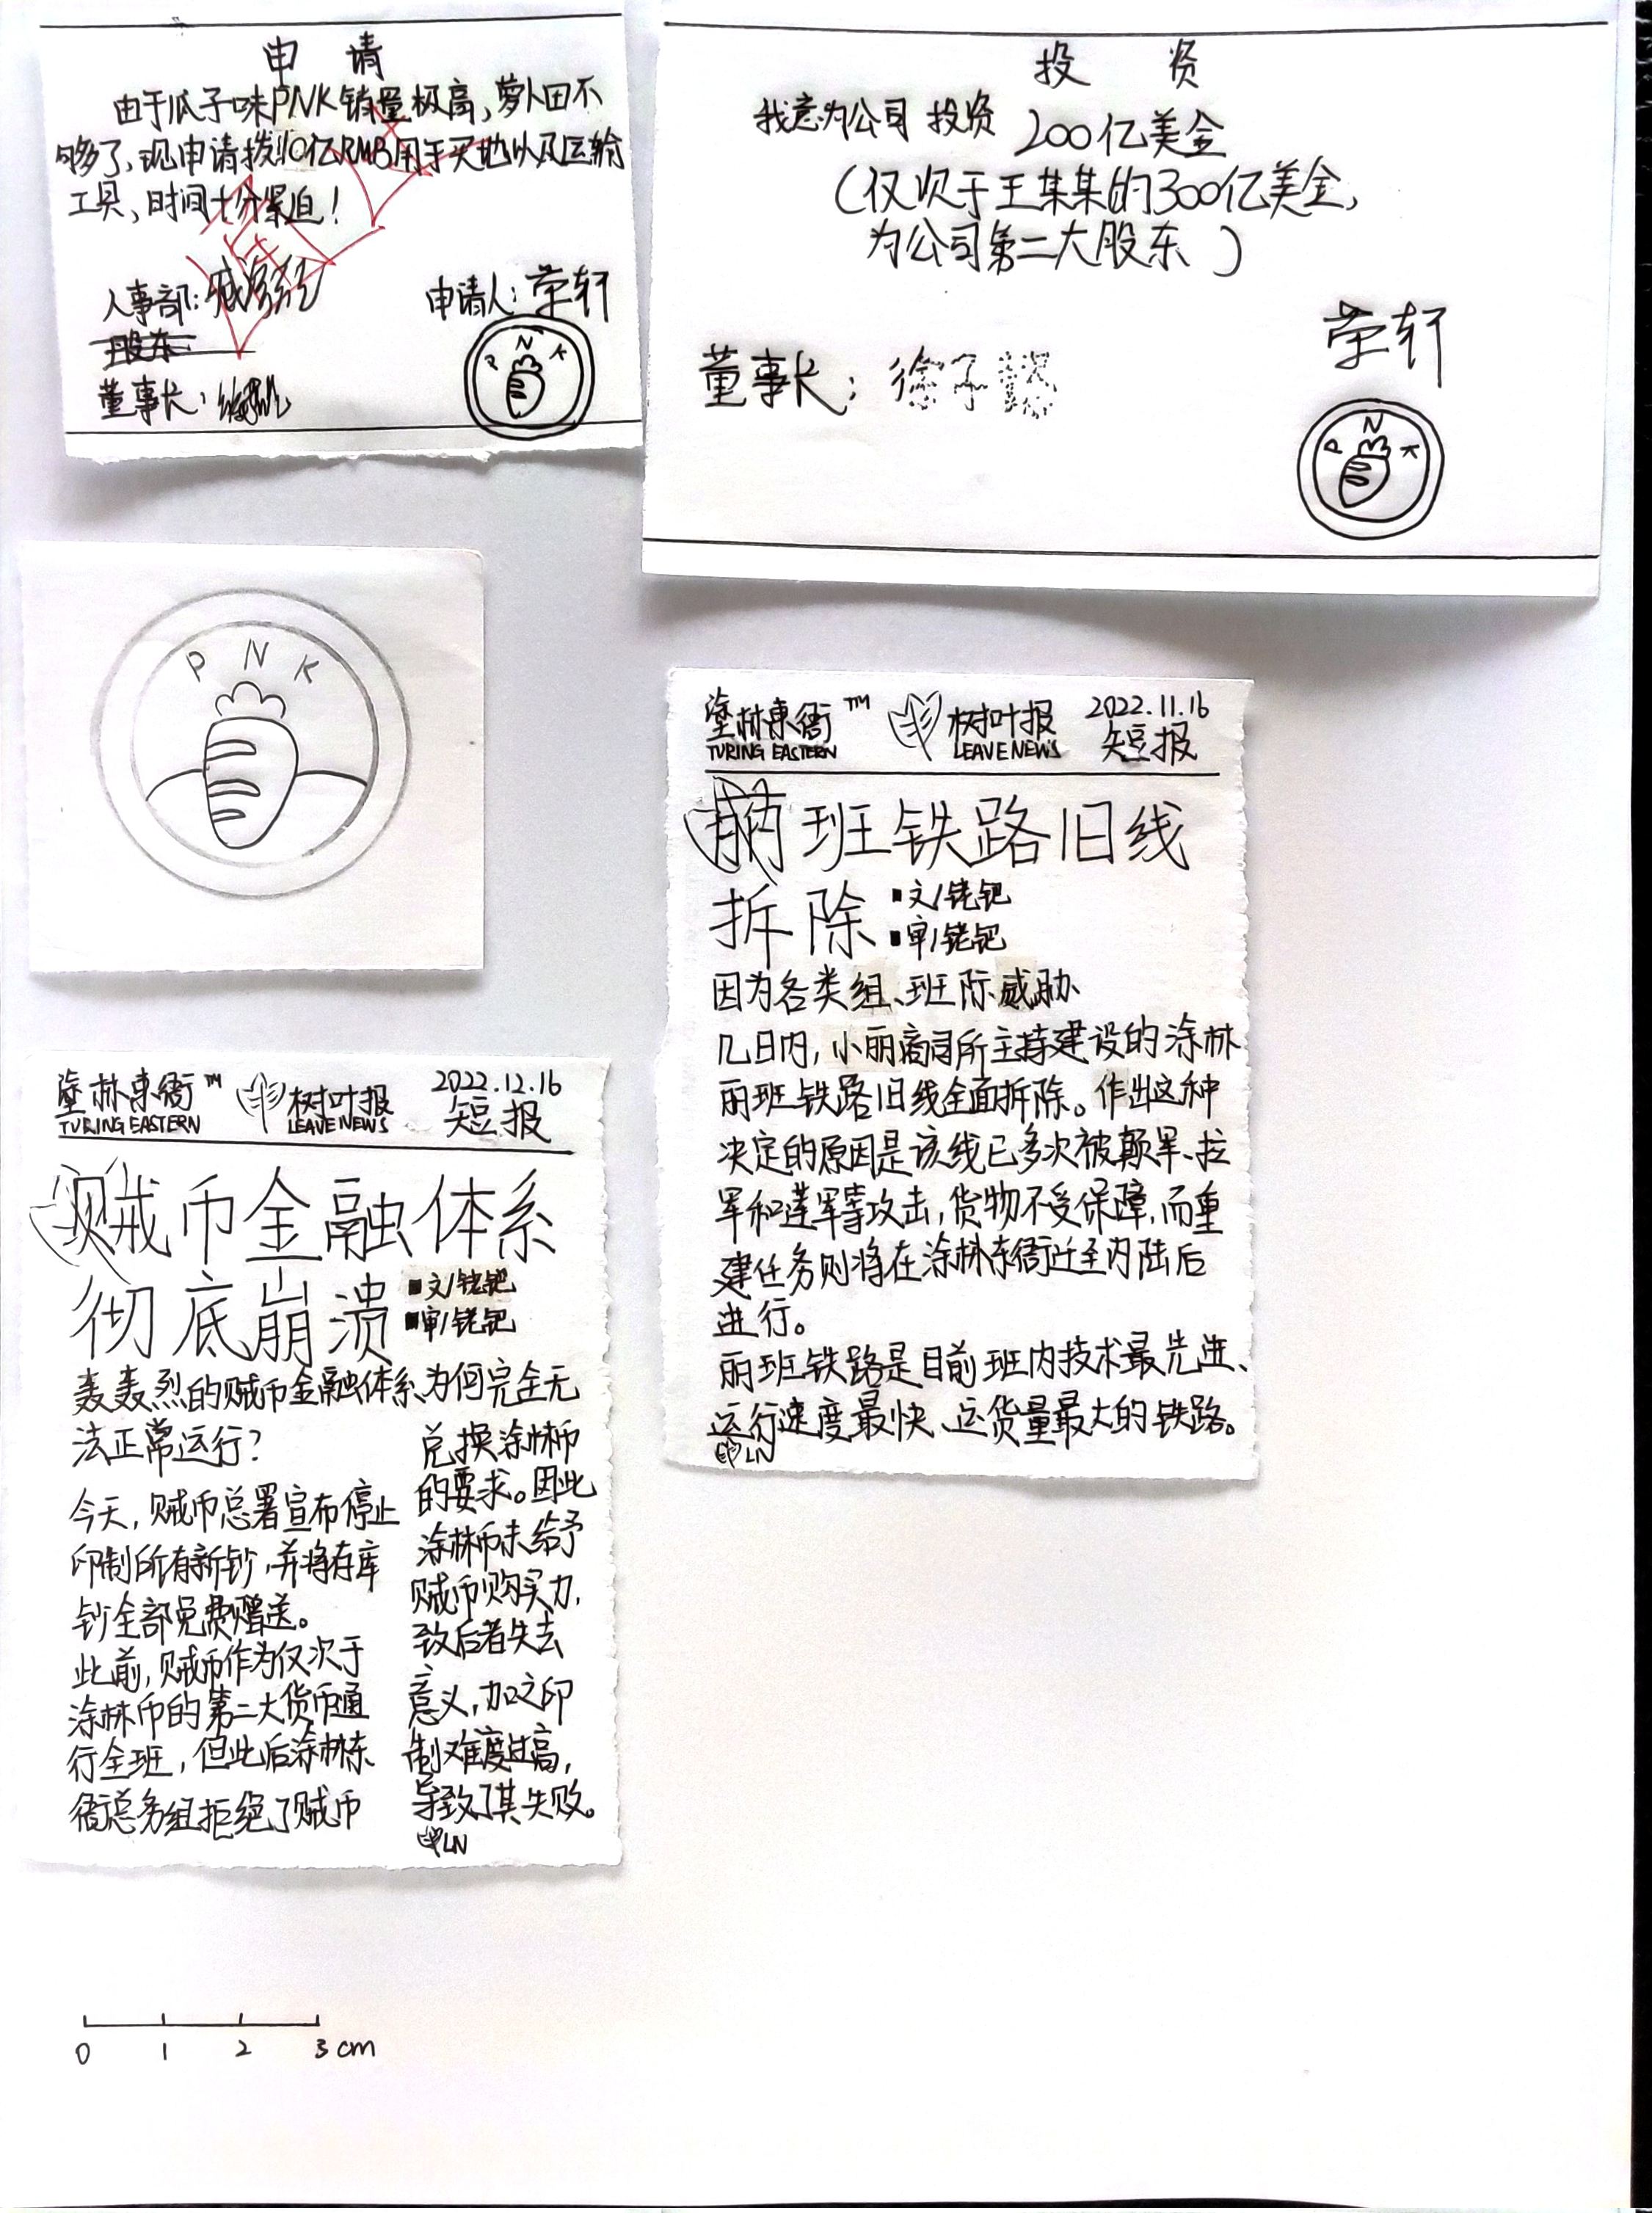 申 请
由于瓜子味PNK销量极高，萝卜田不
够了，现申请拨10亿RMB用于买地以及运输
工具，时间十分紧迫！
人事部：
申请人：荣轩
股东
董事长：
P N K
投 资
我意为公司 投资 200亿美金
（仅次于王某某的300亿美金，
为公司第二大股东）
荣轩
董事长：徐子
P N K
P N K
塗林東衙™ 树叶报 2022.11.16
TURING EASTERN LEAVE NEWS 短报
丽班铁路旧线
拆除
■文/铑钯
■审/铑钯
因为各类组、班际威胁
几日内，小丽商司所主持建设的涂林
丽班铁路旧线全面拆除。作出这种
决定的原因是该线已多次被颠军、拉
军和莲军等攻击，货物不受保障，而重
建任务则将在涂林东衙迁至内陆后
进行。
丽班铁路是目前班内技术最先进、
运行速度最快、运货量最大的铁路。
LN
塗林東衙™ 树叶报 2022.12.16
TURING EASTERN LEAVE NEWS 短报
贼币金融体系
彻底崩溃
■文/铑钯
■审/铑钯
轰轰烈烈的贼币金融体系为何完全无
法正常运行？
今天，贼币总署宣布停止
印制所有新钞，并将存库
钞全部免费赠送。
此前，贼币作为仅次于
涂林币的第二大货币通
行全班，但此后涂林东
衙总务组拒绝了贼币
兑换涂林币
的要求。因此
涂林币未给予
贼币购买力，
致后者失去
意义，加之印
制难度过高，
导致了其失败。
LN
0 1 2 3 cm